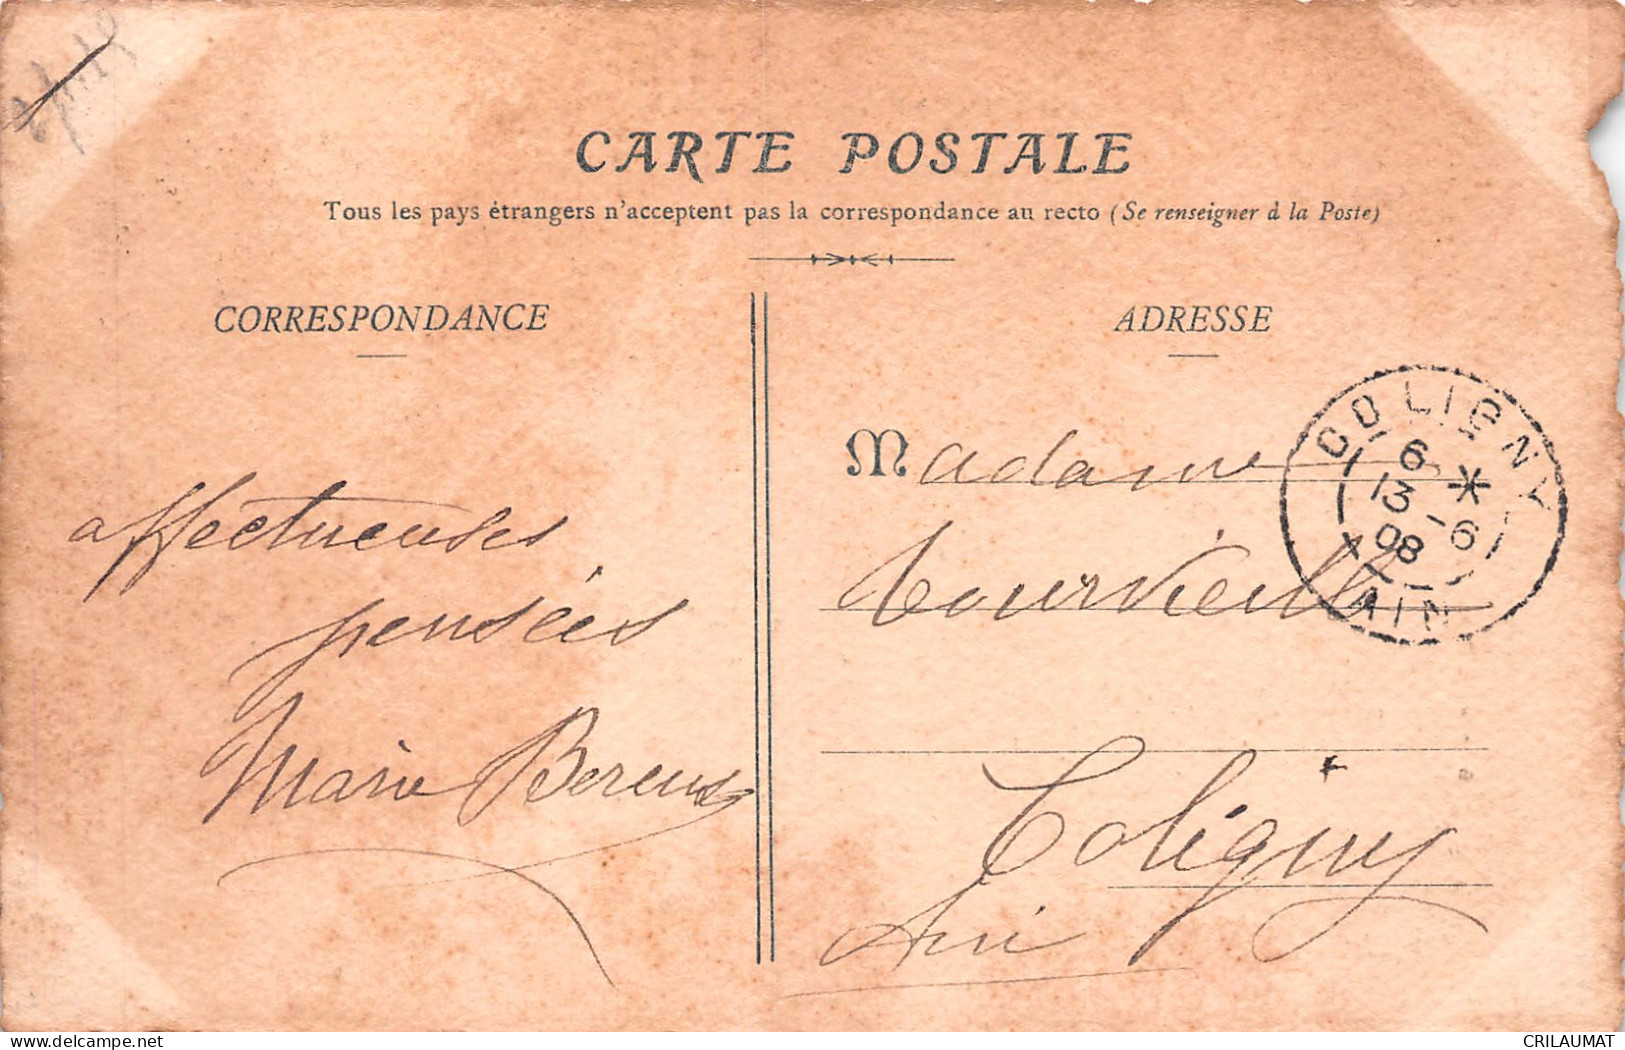 CARTE POSTALE
Tous les pays étrangers n'acceptent pas la correspondance au recto (Se renseigner à la Poste)
CORRESPONDANCE
affectueuses
pensées
Marie
ADRESSE
Madame
Tourvieille
Coligny
Ain
COLIGNY
6 *
13 - 6
08
AIN
delcampe.net
CRILAUMAT